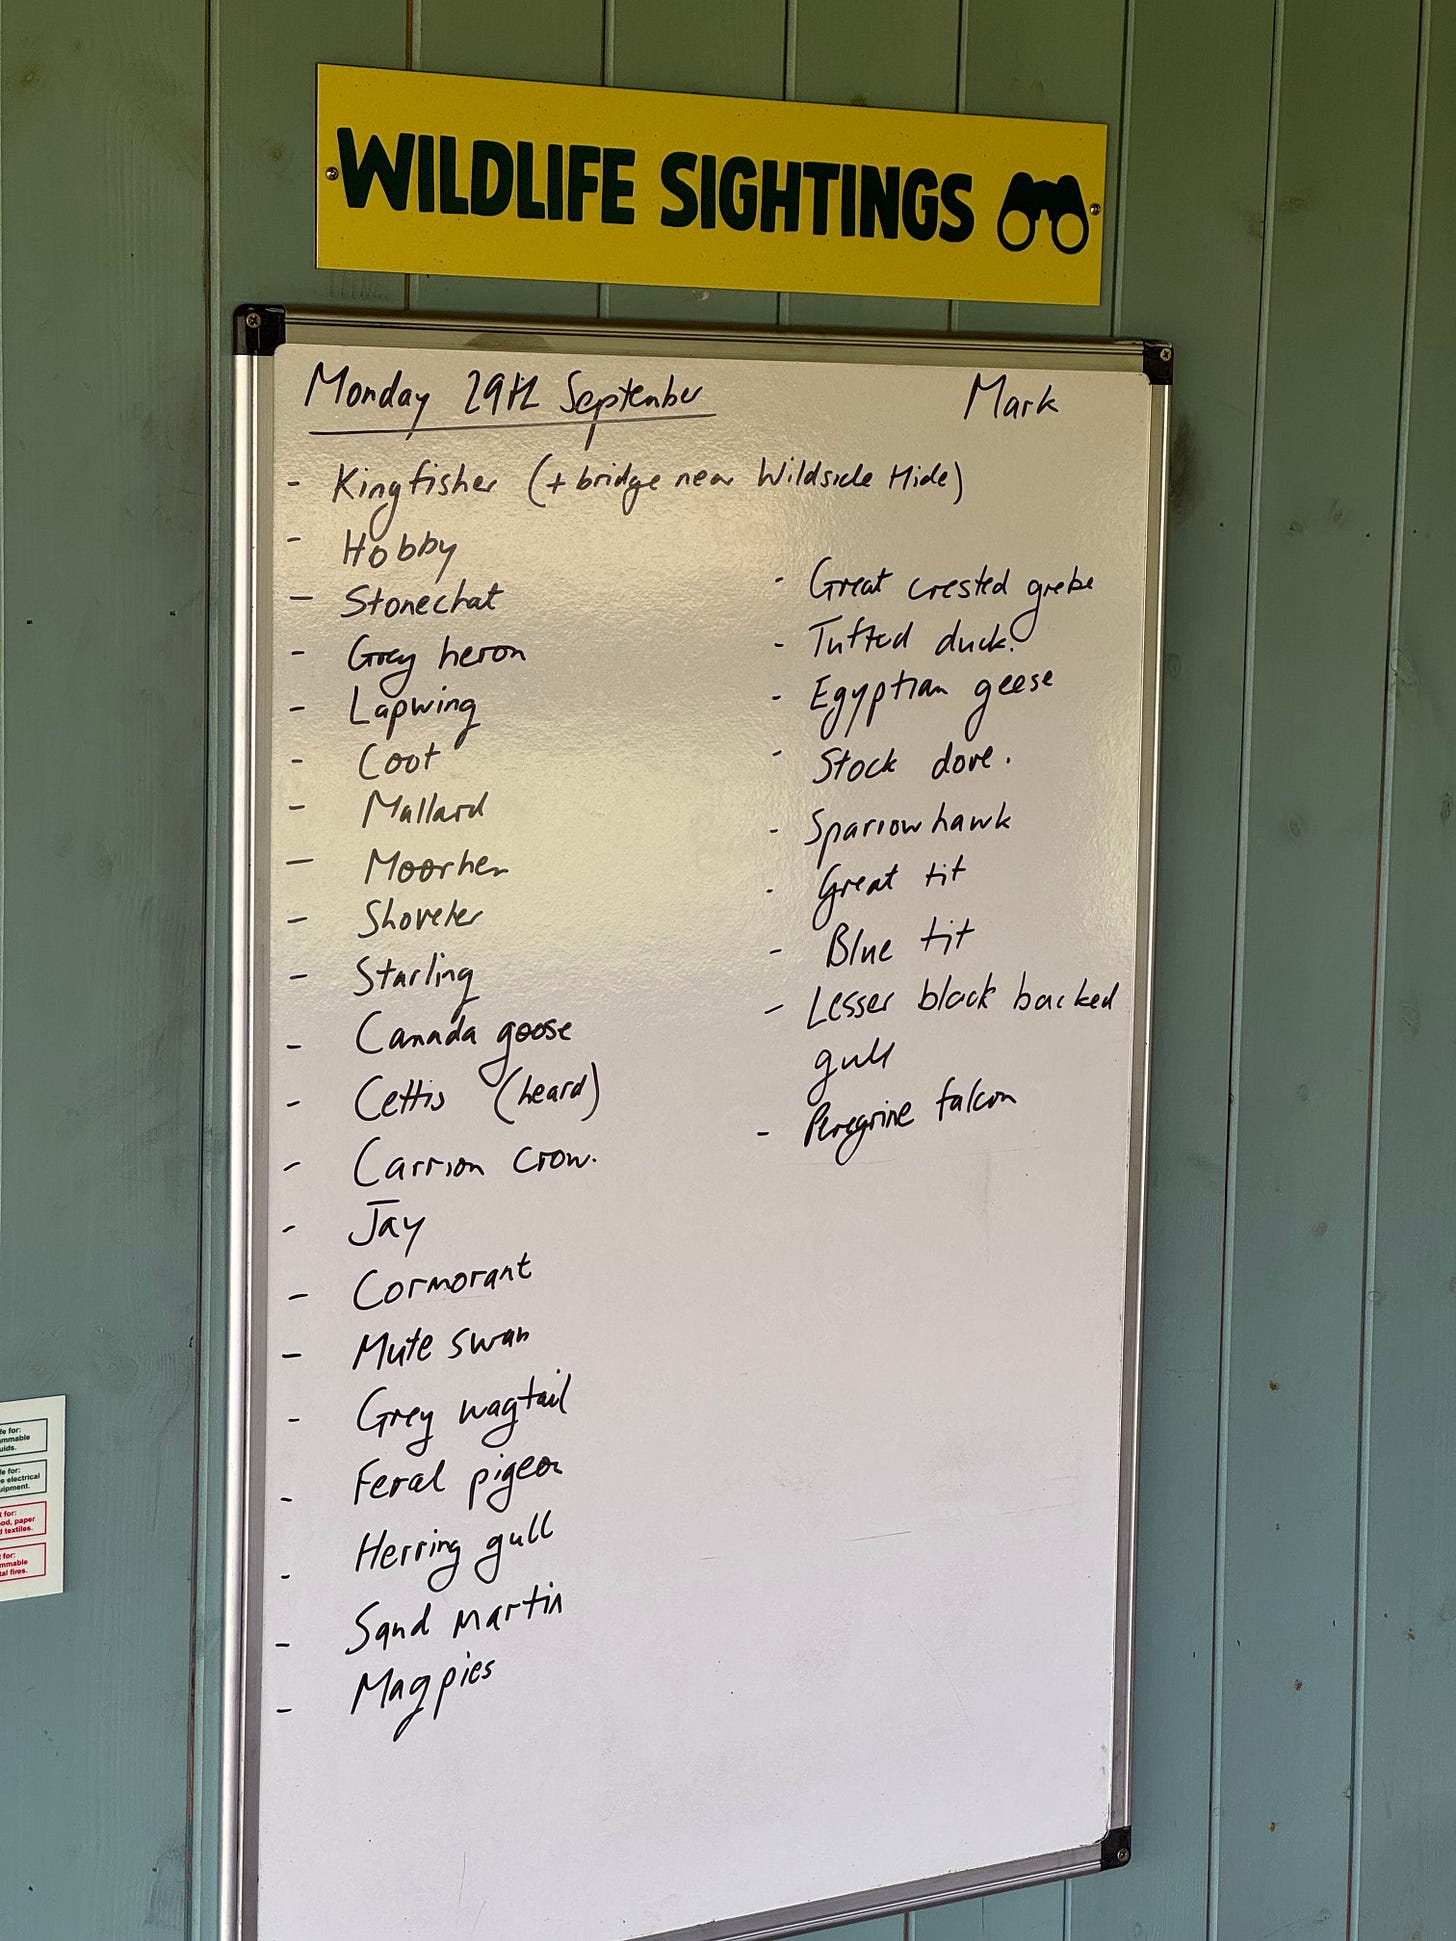 WILDLIFE SIGHTINGS
Monday 29th September
Mark
- Kingfisher (+ bridge near Wildside Hide)
- Hobby
- Stonechat
- Grey heron
- Lapwing
- Coot
- Mallard
- Moorhen
- Shoveler
- Starling
- Canada goose
- Cettis (heard)
- Carrion crow.
- Jay
- Cormorant
- Mute swan
- Grey wagtail
- Feral pigeon
- Herring gull
- Sand martin
- Magpies
- Great crested grebe
- Tufted duck.
- Egyptian geese
- Stock dove.
- Sparrowhawk
- Great tit
- Blue tit
- Lesser black backed
gull
- Peregrine falcon
fe for:
mmable
uids.
fe for:
e electrical
uipment.
t for:
od, paper
d textiles.
t for:
mmable
tal fires.